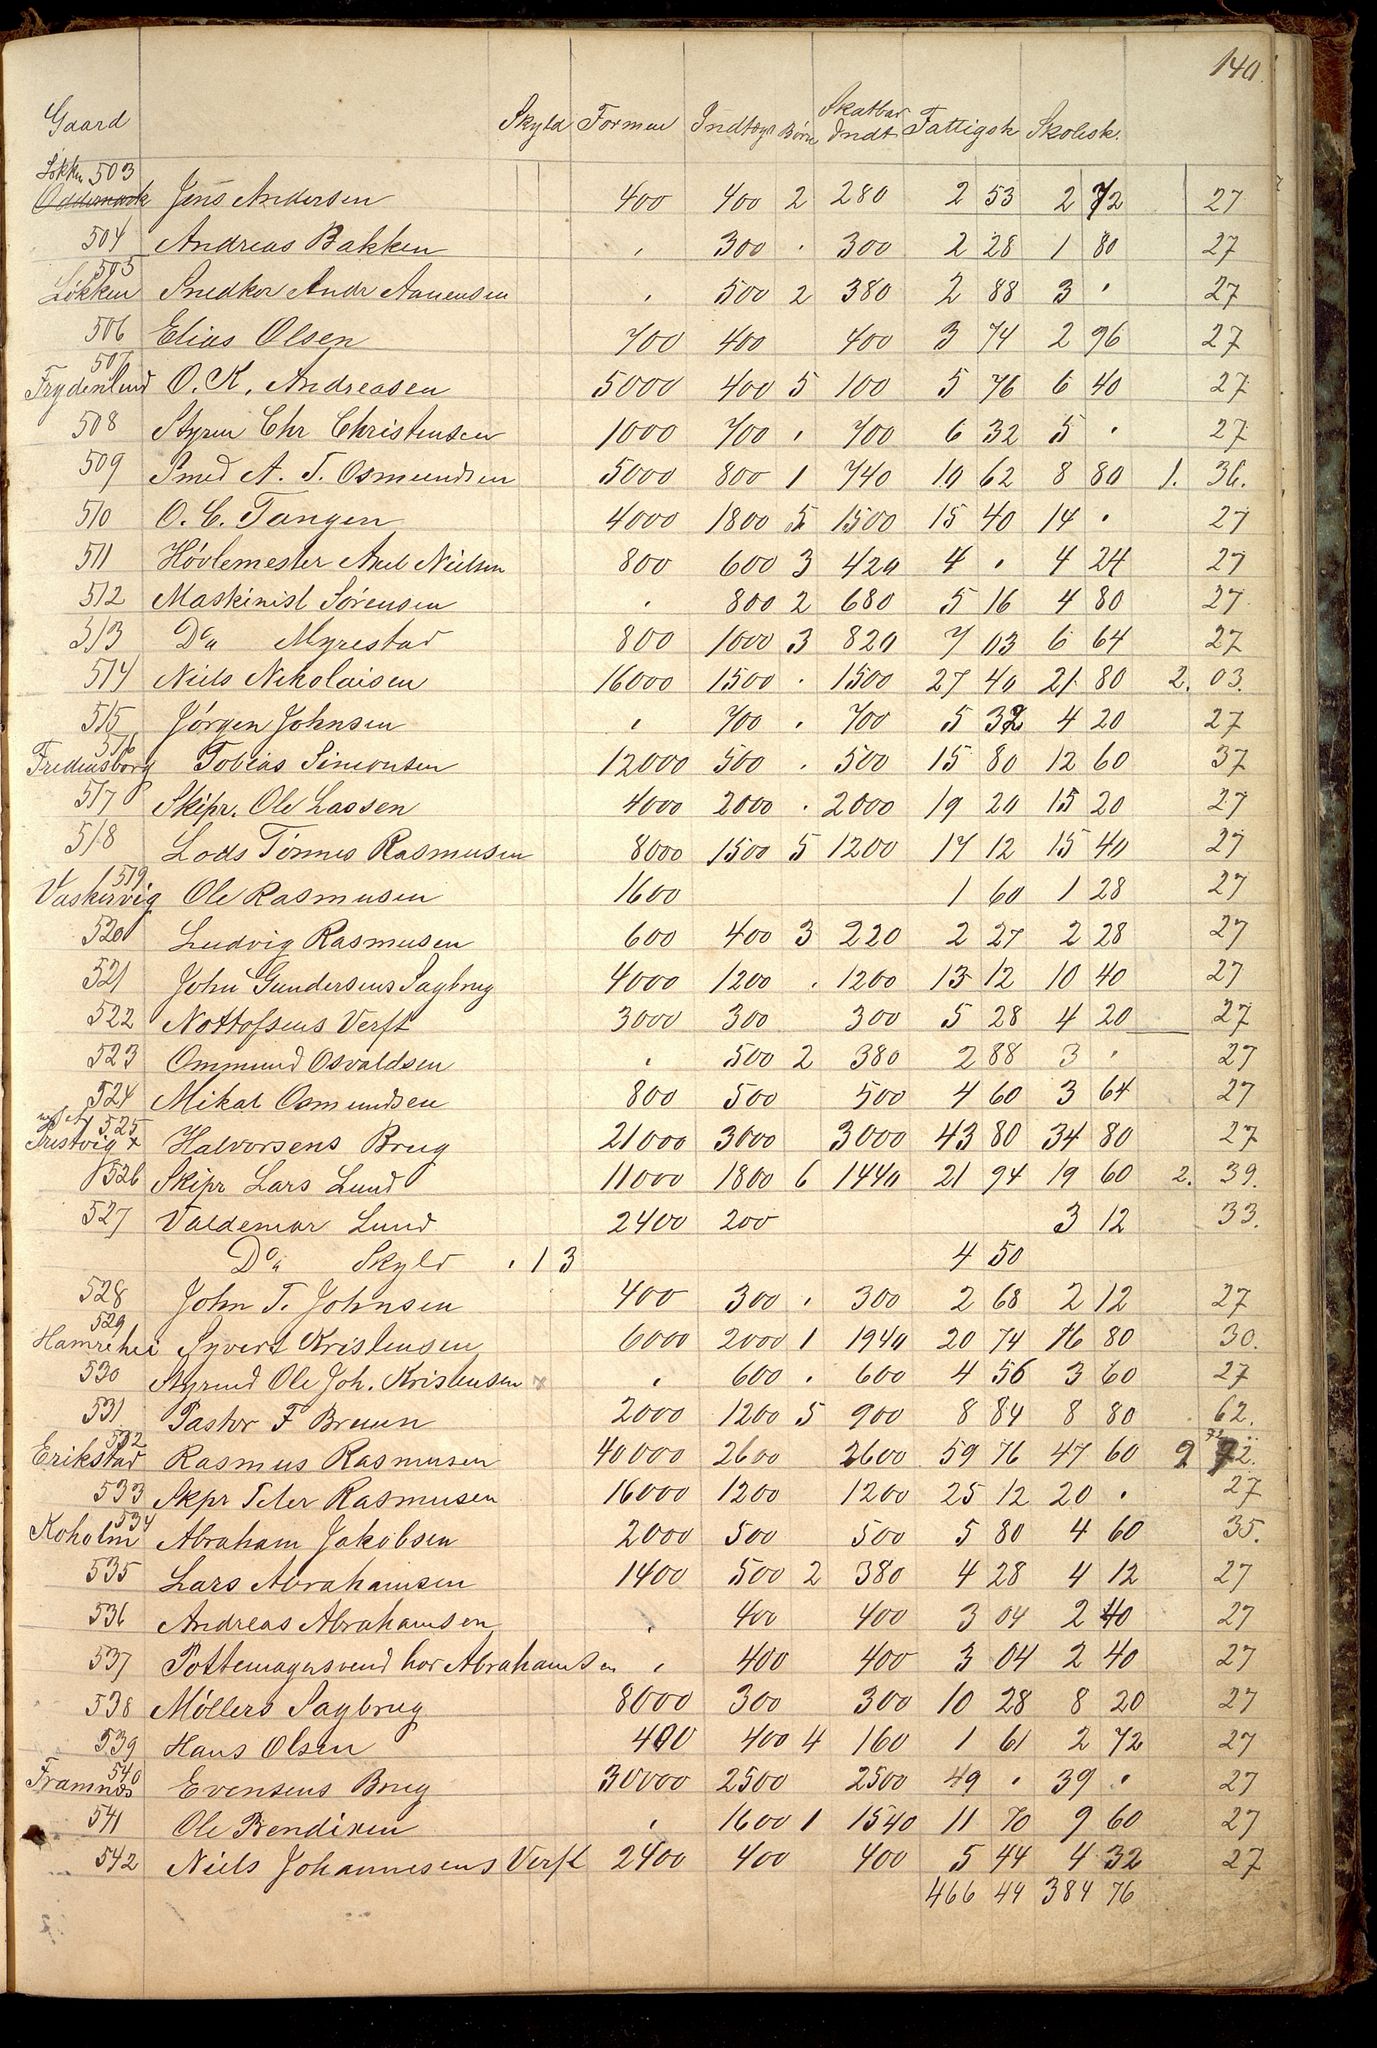 140.
Gaard Skyld Formue Indtægt Børn Skatbar Indt Fattigsk Skolesk.
Løkken 503
Oddernæck Jens Andersen 400 400 2 280 2 53 2 72 27
504 Andreas Bakken . 300 . 300 2 28 1 80 27
505
Løkken Snedker Andr Aanensen . 500 2 380 2 88 3 . 27
506 Elias Olsen 700 400 400 3 74 2 96 27
507
Frydenlund O. K. Andreasen 5000 400 5 100 5 76 6 40 27
508 Styrm Chr Christensen 1000 700 . 700 6 32 5 . 27
509 Smed A. T. Osmundsen 5000 800 1 740 10 62 8 80 1. 36.
510 O. C. Tangen 4000 1800 5 1500 15 40 14 . 27
511 Høvlemester Axel Nielsen 800 600 3 420 4 . 4 24 27
512 Maskinist Sørensen . 800 2 680 5 16 4 80 27
513 Do Myrestad 800 1000 3 820 7 03 6 64 27
514 Niels Nikolaisen 16000 1500 . 1500 27 40 21 80 2. 03.
515 Jørgen Johnsen . 700 . 700 5 32 4 20 27
516
Fredensborg Tobias Simonsen 12000 500 . 500 15 80 12 60 37
517 Skipr. Ole Lassen 4000 2000 . 2000 19 20 15 20 27
518 Lods Tørres Rasmusen 8000 1500 5 1200 17 12 15 40 27
519
Vaskervig Ole Rasmusen 1600 1 60 1 28 27
520 Ludvig Rasmusen 600 400 3 220 2 27 2 28 27
521 John Gundersens Sagbrug 4000 1200 . 1200 13 12 10 40 27
522 Nottofsens Verft 3000 300 300 5 28 4 20 27
523 Ommund Osvaldsen . 500 2 380 2 88 3 . 27
524 Mikal Osmundsen 800 500 500 4 60 3 64 27
525
Prestvig x Halvorsens Brug 21000 3000 3000 43 80 34 80 27
526 Skipr Lars Lund 11000 1800 6 1440 21 94 19 60 2. 39.
527 Valdemar Lund 2400 200 3 12 33.
Do Skyld . 13 4 50
528 John T. Johnsen 400 300 . 300 2 68 2 12 27
529
Hamrehei Syvert Kristensen 6000 2000 1 1940 20 74 16 80 30.
530 Styrmd Ole Joh. Kristensen . 600 . 600 4 56 3 60 27
531 Pastor F Bruun 2000 1200 5 900 8 84 8 80 . 62.
532
Erikstad Rasmus Rasmusen 40000 2600 2600 59 76 47 60 9 72.
533 Skpr Peter Rasmusen 16000 1200 1200 25 12 20 . 27
534
Koholm Abraham Jakobsen 2000 500 500 5 80 4 60 35.
535 Lars Abrahamsen 1400 500 2 380 4 28 4 12 27
536 Andreas Abrahamsen . 400 400 3 04 2 40 27
537 Pottemagersvend hos Abrahamsen . 400 400 3 04 2 40 27
538 Møllers Sagbrug 8000 300 300 10 28 8 20 27
539 Hans Olsen 400 400 4 160 1 61 2 72 27
540
Framnes Evensens Brug 30000 2500 2500 49 . 39 . 27
541 Ole Bendixen . 1600 1 1540 11 70 9 60 27
542 Niels Johannesens Verft 2400 400 400 5 44 4 32 27
466 44 384 76